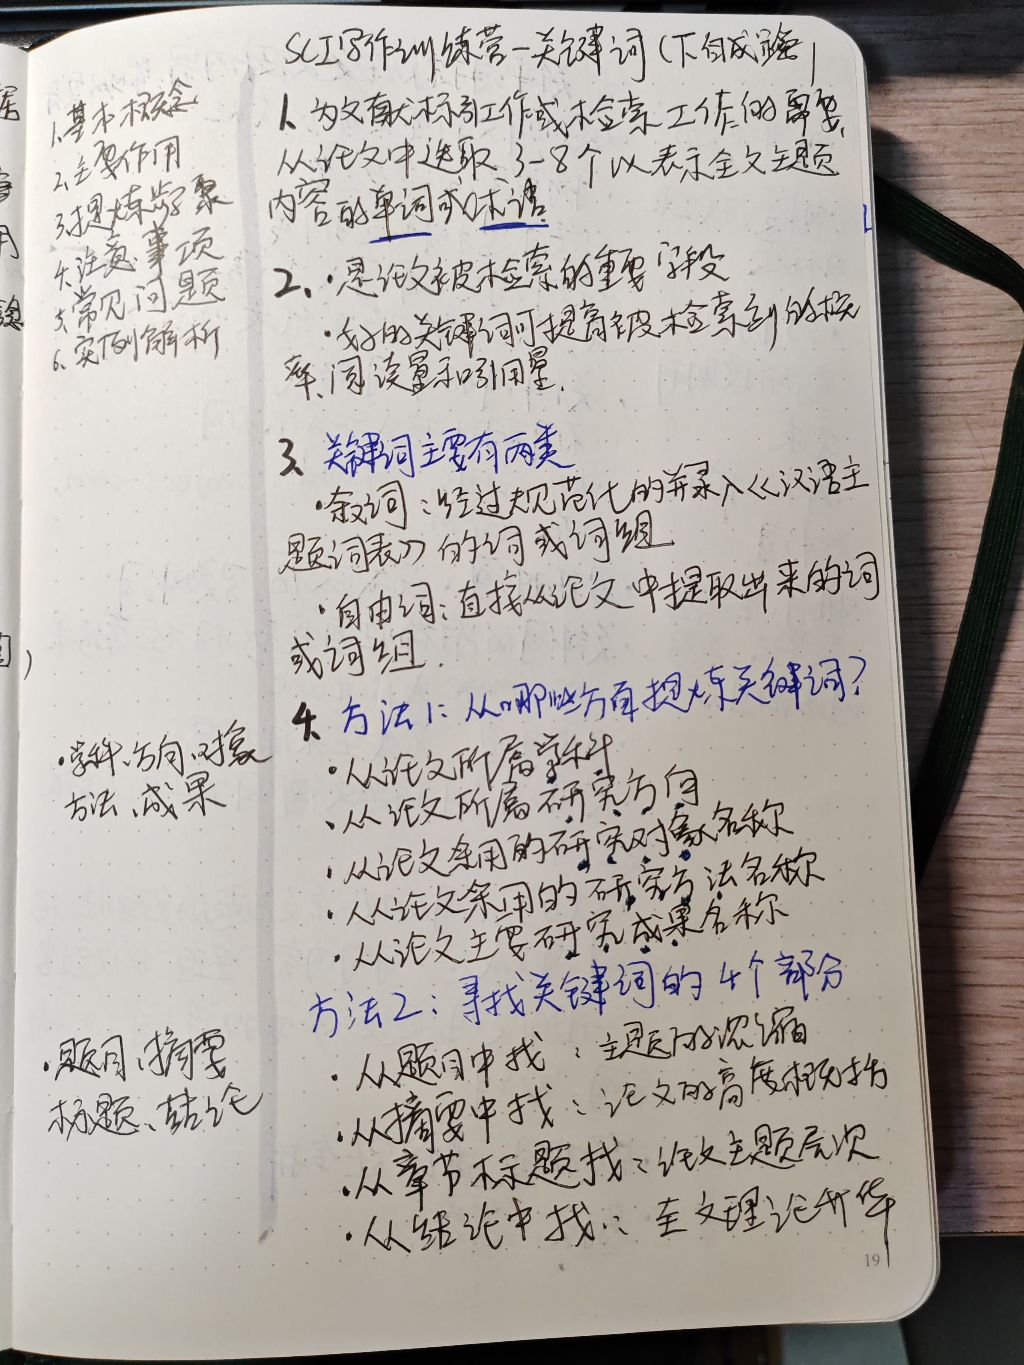 SCI写作训练营-关键词(下自成蹊)
1.基本概念
2.主要作用
3.提炼步骤
4.注意事项
5.常见问题
6.实例解析
1、为文献标引工作或检索工作的需要,
从论文中选取3-8个以表示全文主题
内容的单词或术语.
2、·是论文被检索的重要字段
·好的关键词可提高被检索到的概
率、阅读量和引用量.
3、关键词主要有两类
·叙词:经过规范化的并录入《汉语主
题词表》的词或词组
·自由词:直接从论文中提取出来的词
或词组.
4、方法1:从哪些方面提炼关键词?
·从论文所属学科
·从论文所属研究方向
·从论文采用的研究对象名称
·从论文采用的研究方法名称
·从论文主要研究成果名称
·学科、方向、对象
方法、成果
方法2:寻找关键词的4个部分
·从题目中找:主题的浓缩
·从摘要中找:论文的高度概括
·从章节标题找:论文主题层次
·从结论中找:全文理论升华
·题目、摘要
标题、结论
19